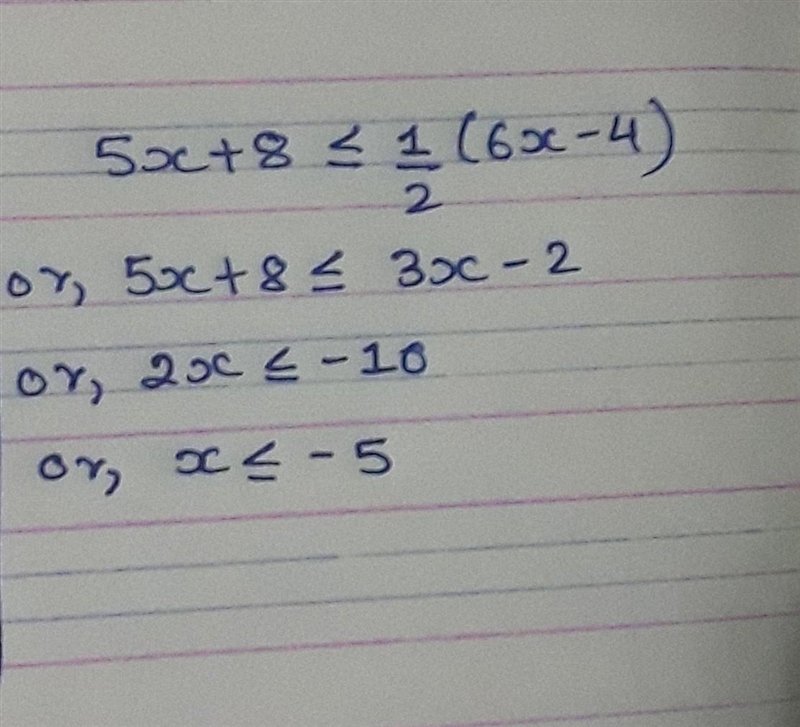 5x+8 ≤ 1/2 (6x-4)
or, 5x+8 ≤ 3x-2
or, 2x ≤ -10
or, x ≤ -5